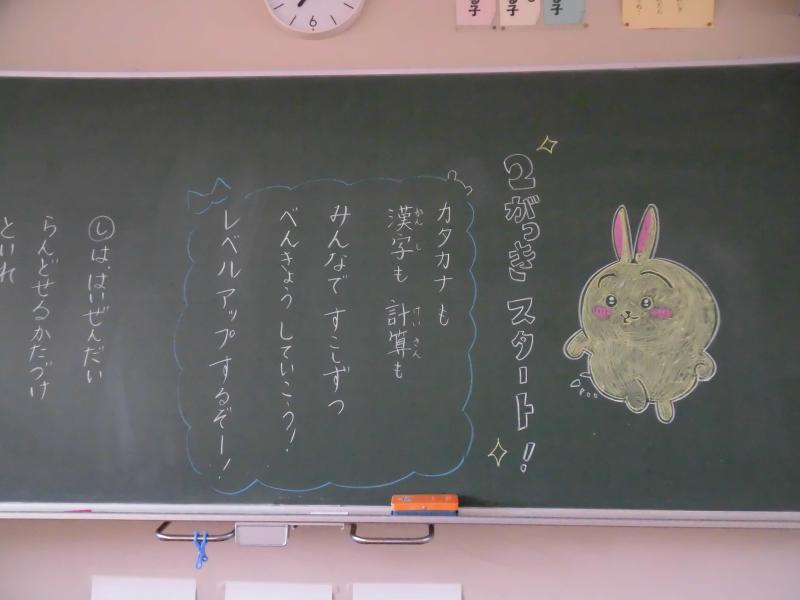 2がっき スタート!
カタカナ も
漢字も 計算も
かん じ
けい さん
みんなで すこしずつ
べんきょう していこう!
レベルアップするぞー!
し は、はいぜんだい
らんどせるのかたづけ
といれ
6